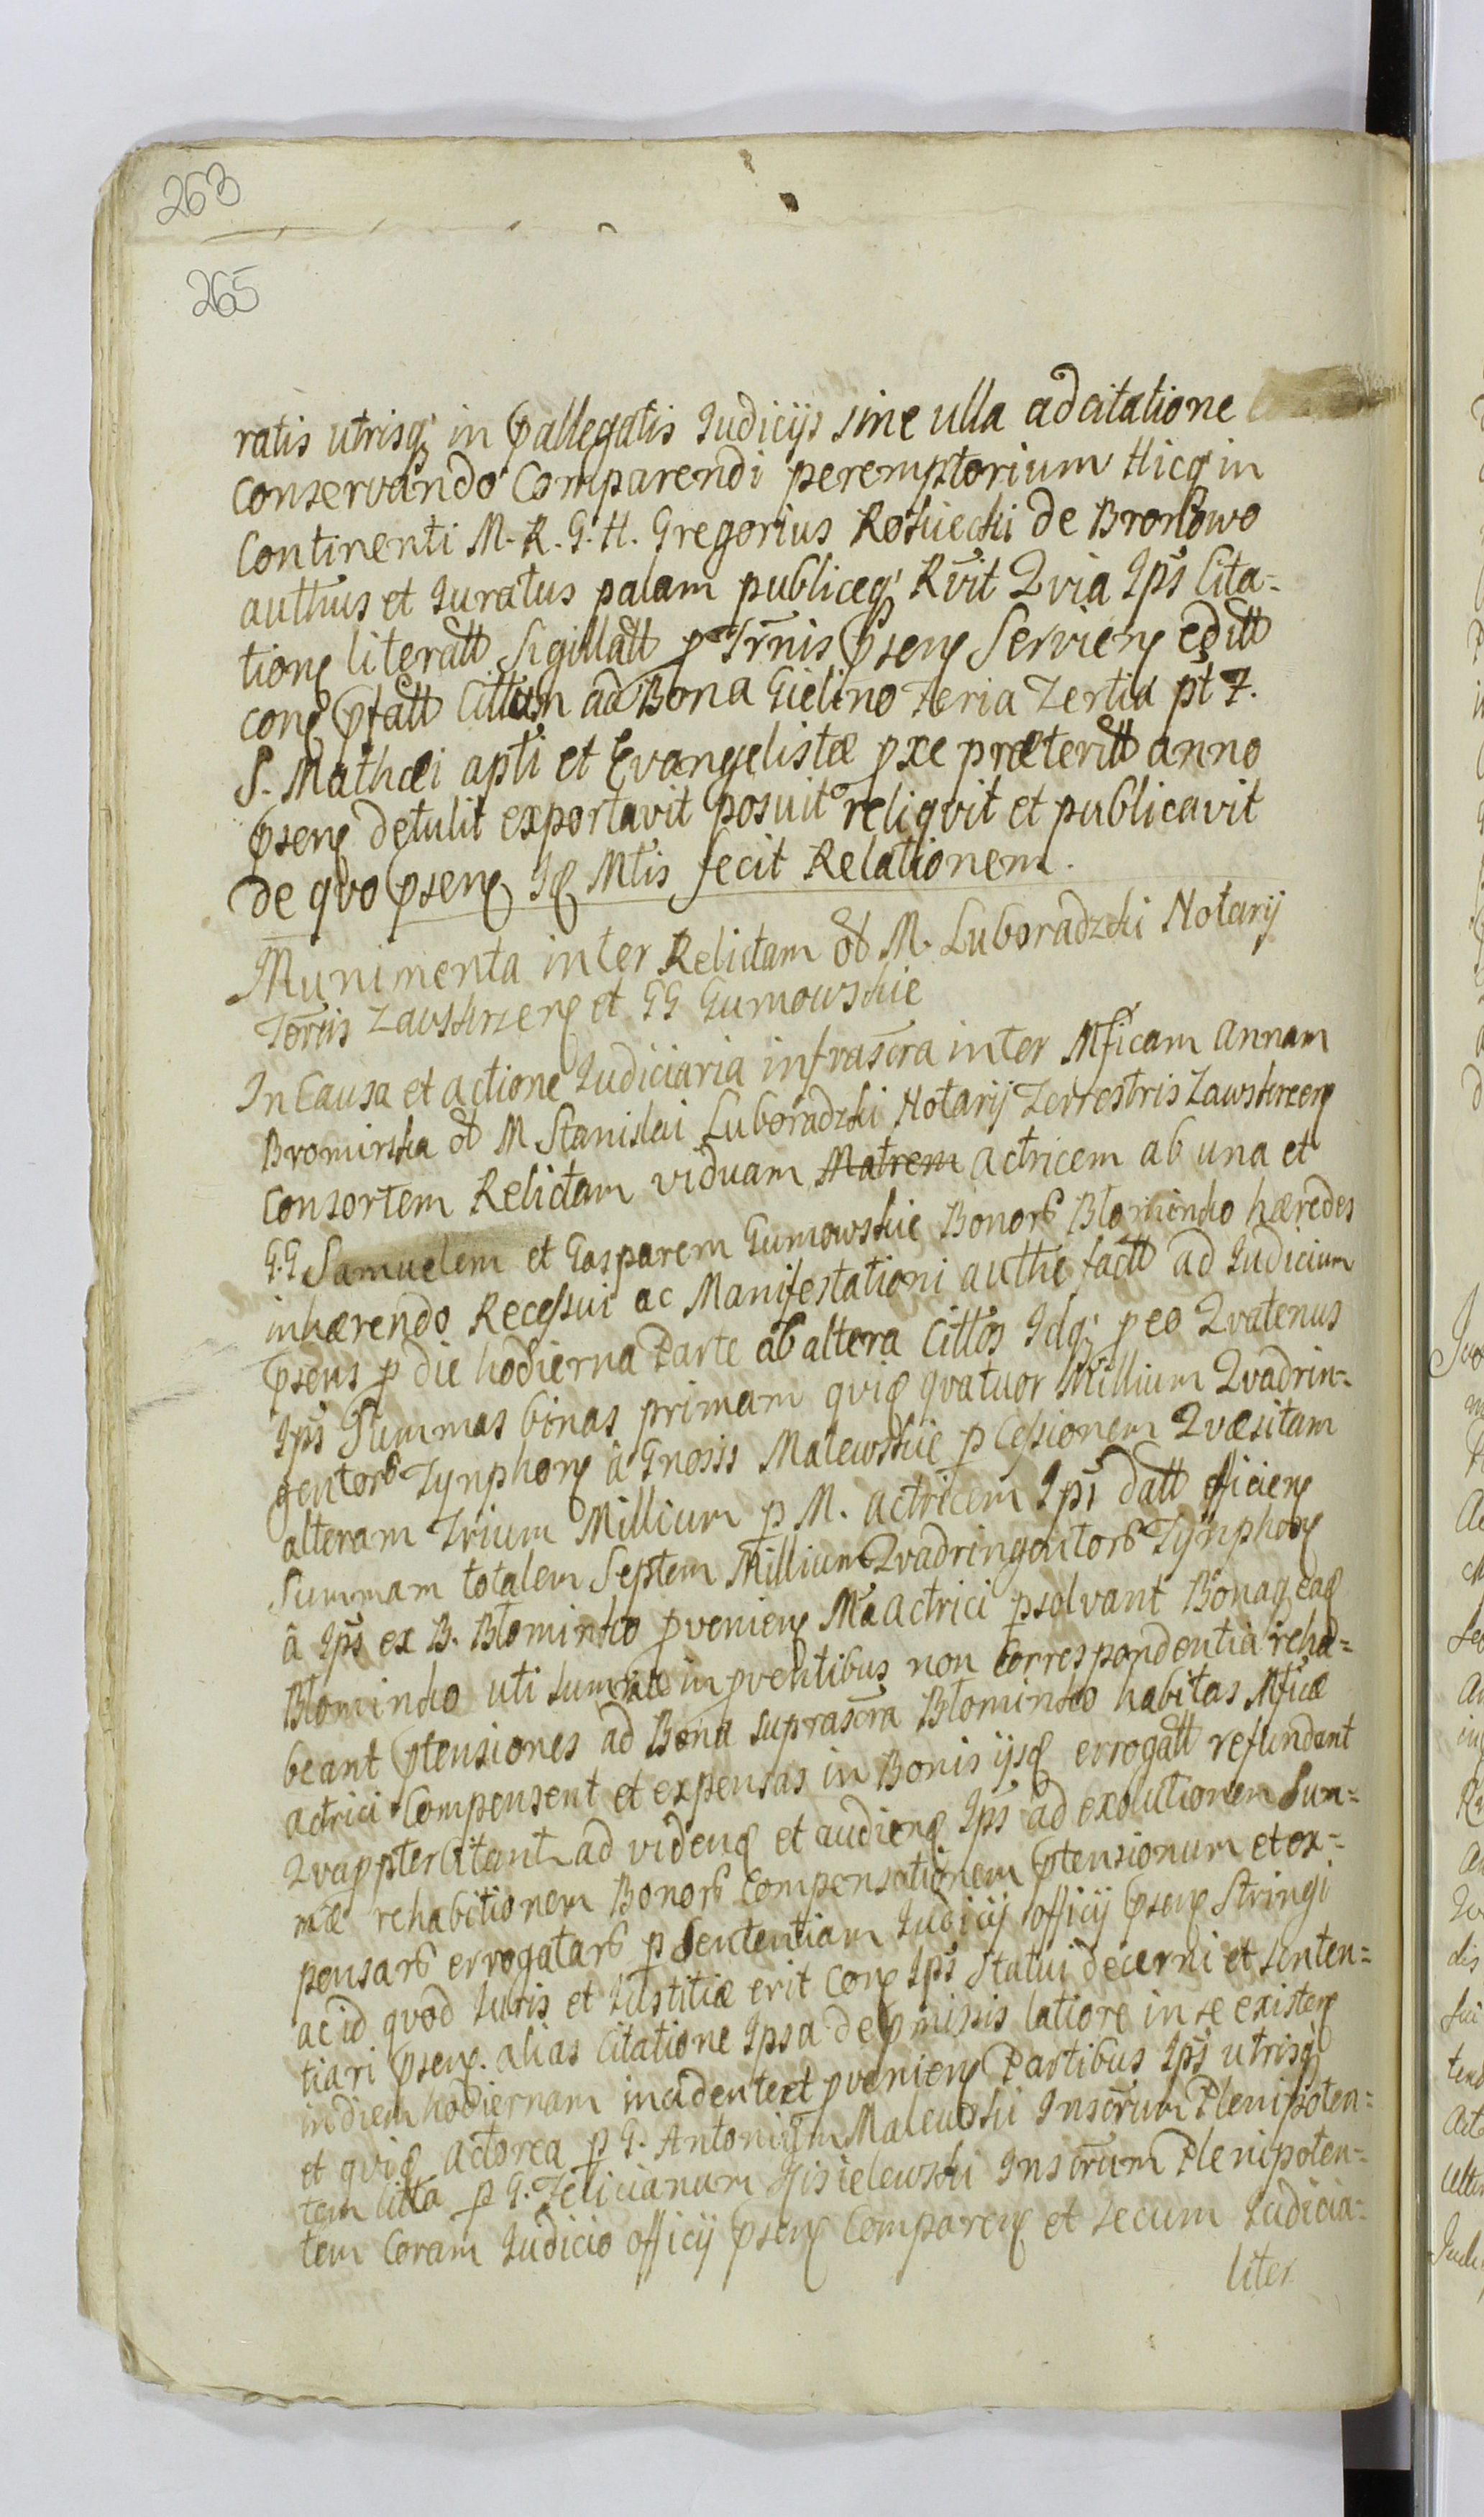 263
265
ratis utrisq; in pallegatis Iudicijs sine ulla adcitatione
Conservando Comparendi peremptorium Hicq in
Continenti M. R. G. H. Gregorius Rościecki de Bronowo
authus et Iuratus palam publiceq; Rvit Qvia Ips Cita-
tione literatt Sigillatt p Trnis psen Servien editt
con pfatt Cittum ad Bona Gielino Feria Tertia pt F.
S. Mathæi apti et Evangelistæ pxe præteritt anno
psen detulit exportavit posuit reliqvit et publicavit
de qvo psen Iq Mtis fecit Relationem.
Munimenta inter Relictam ol M. Luboradzki Notarij
Terris Zavskrzen et GG Gumowskie
In Causa et actione Iudiciaria infrascra inter Mficam annam
Bromirska ol M Stanislai Luboradzki Notarij Terrestris Zawskrzen
Consortem Relictam viduam Matrem actricem ab una et
G.G Samuelem et Gasparem Gumowskie Bonor Blominko hæredes
inhærendo Recessui ac Manifestationi authe factt ad Iudicium
psens p die hodierna Parte ab altera Cittos Idq; p eo Qvatenus
Ips Summas binas primam qviq qvatuor Millium Qvadrin-
gentor Tynphon â Gnosis Malewskie p Cessionem Qvæsitam
alteram Trium Millium p M. actricem Ips datt efficien
Summam totalem Septem Millium Qvadringentor Tynphon
â Ips ex B. Blominko pvenien Ma actrici psolvant Bonaq eaq
Blominko uti summæ in pventibus non Correspondentia reha-
beant ptensiones ad Bona suprascra Blominko habitas Mficæ
actrici Compensent et expensas in Bonis ijsq errogatt refundant
Qvappter Citant ad videnq et audienq Ips ad exolutionem Sum-
mæ rehabitionem Bonor Compensationem ptensionum et ex-
pensar errogatar p Sententiam Iudicij officij psen Stringi
ac id qvod Iuris et Iustitiæ erit Con Ips Statui decerni et senten-
tiari psen. alias Citatione Ipsa de pmissis latiore in se existen
in diem hodiernam incidente et pvenien Partibus Ips utrisq;
et qviq actorea p G. Antonium Malewski Inscrum Plenipoten-
tem Citta p G. Felicianum Kisielewski Inscrum Plenipoten-
tem Coram Iudicio officij psen Comparen et secum Iudicia-
liter